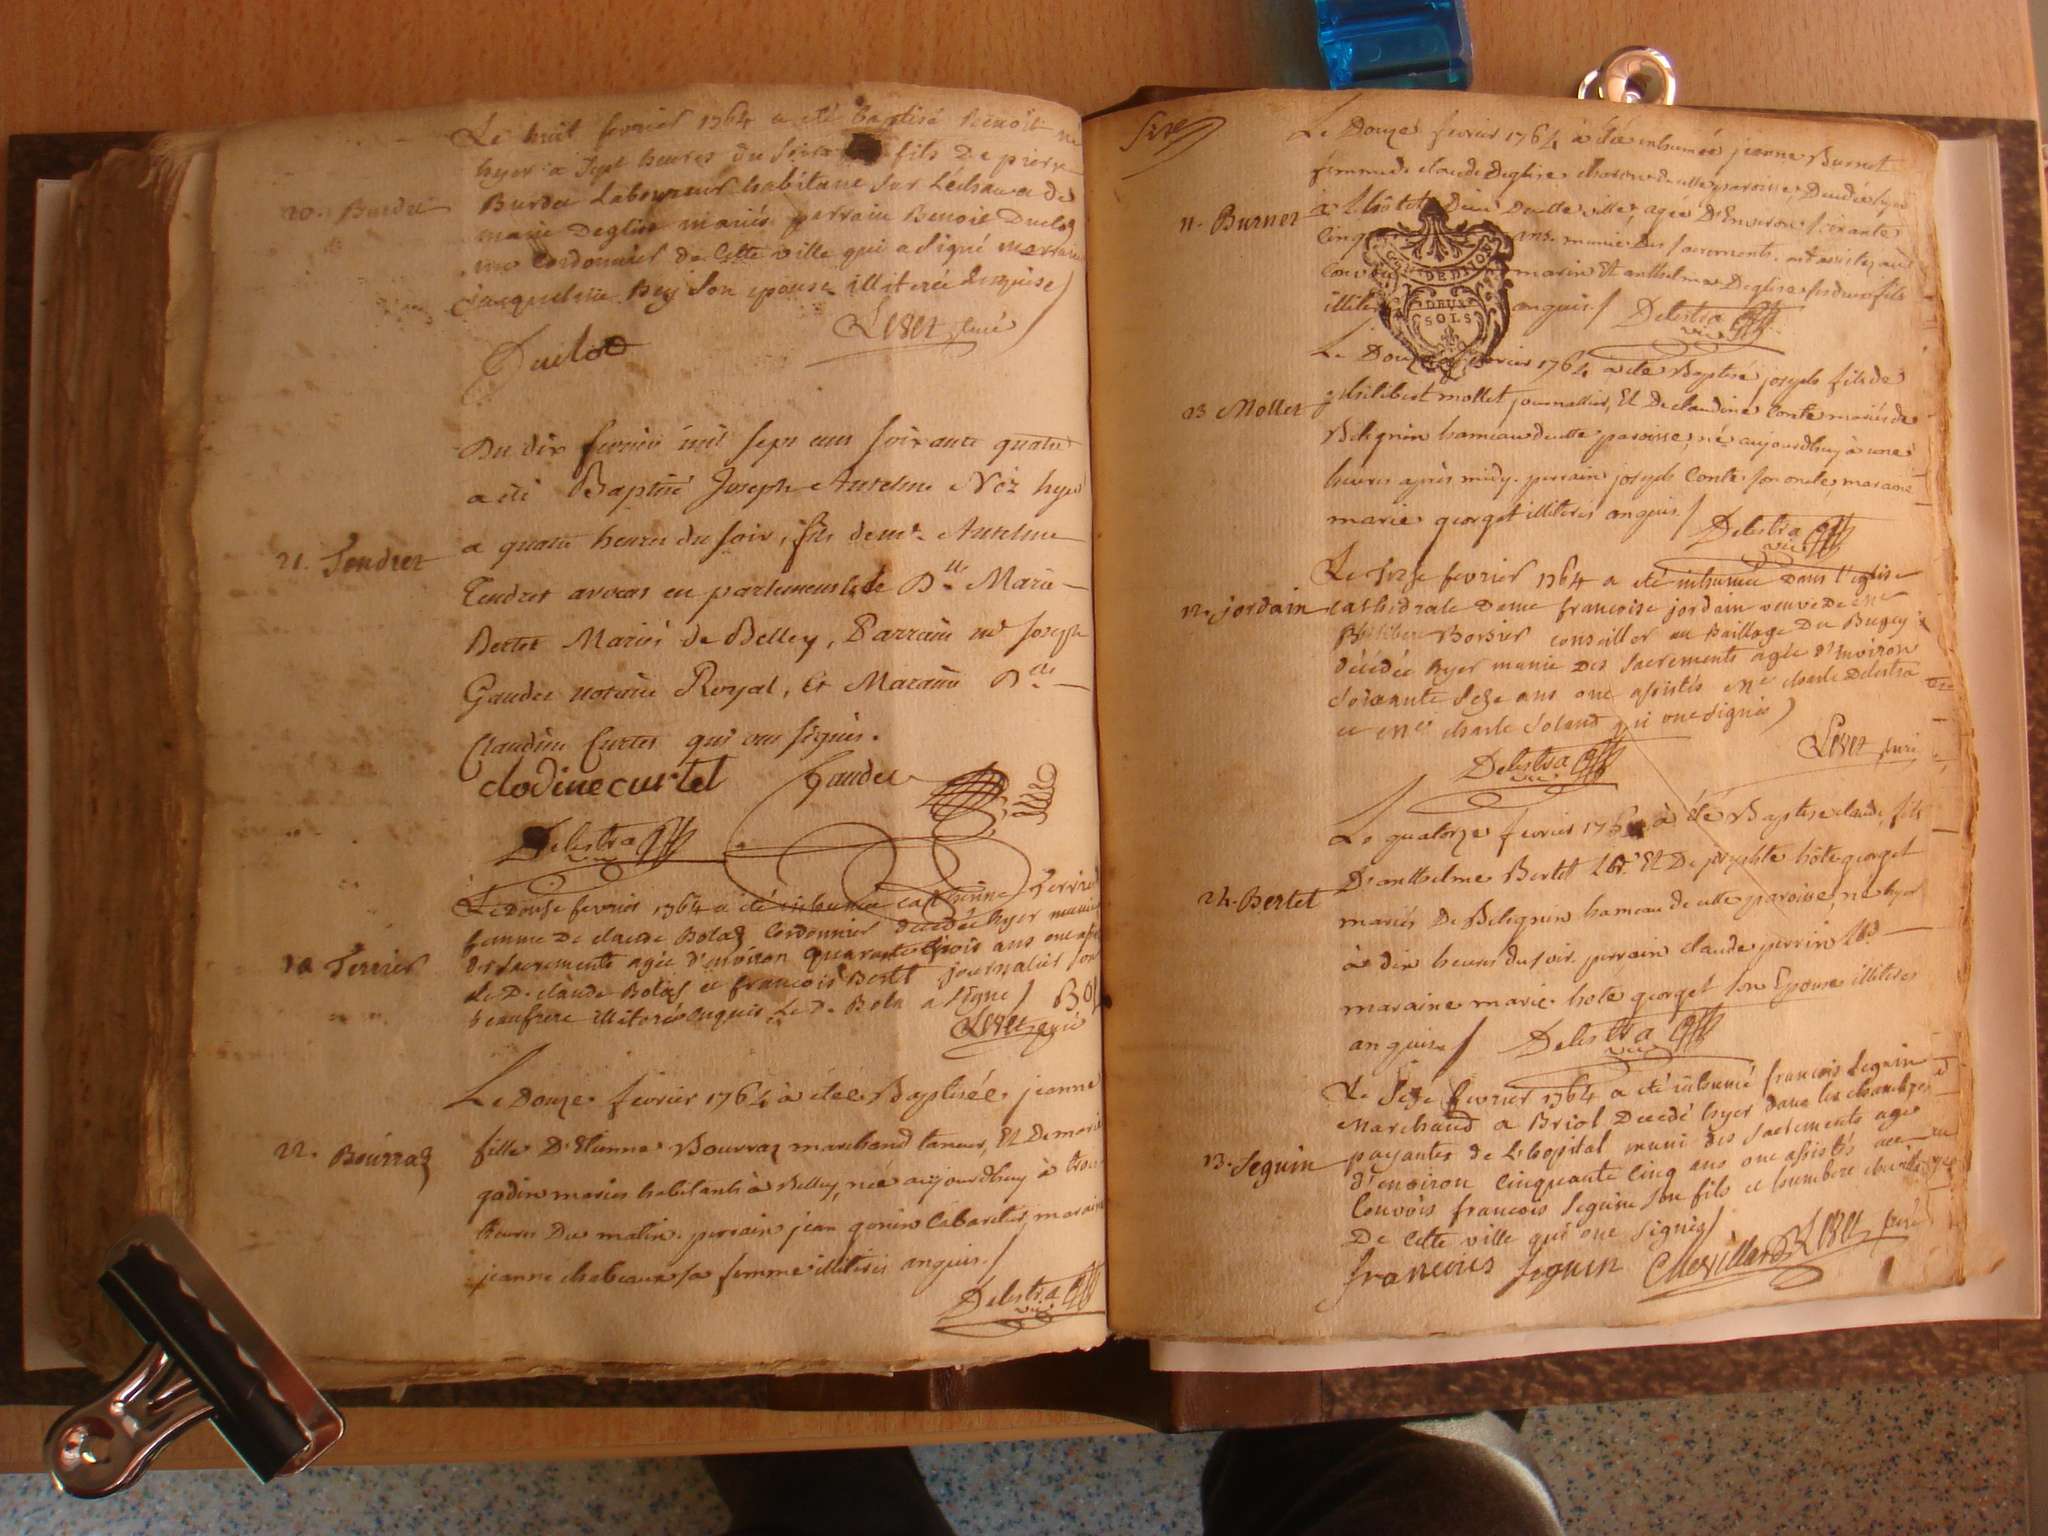 Le huit fevrier 1764 a eté baptisé Benoit né
hyer a sept heures du soir fils De pierre
20. Burdet
Burdet Laboureur habitant sur Lechaux & de
marie Deglise mariés parrain Benoit Duclos
me Cordonnier de Cette ville qui a signé marraine
Jacqueline Bey son epouse illiterée enquise
Duclos
Levet curé
Du dix fevrier mil sept cens soixante quatre
a été Baptisé Joseph Antelme Né hyer
a quatre heures du soir, fils de mr. Antelme
21. Tendret
Tendret avocat en parlement & de Dlle Marie
Bertet Mariés de Belley, Parrain me Joseph
Gaudet notaire Royal, Et Maraine Dlle
Claudine Curtet qui ont signés.
clodine curtet Gaudet
Delestra vic
Le Douse fevrier 1764 a eté inhumée Catherine Terrier
femme De claude Bolaz Cordonnier decedée hyer munie
10 Terrier
des sacrements agée d'environ quarante trois ans ont
le D. claude Bolaz et francois Bertet journalier son
beaufrere illiteré enquis Le D. Bola a signé
Levet curé
Le Douze fevrier 1764 à étée Baptisée jeanne
22. Bourraz
fille D'Etienne Bourraz marchand taneur, Et De marie
godin mariés habitants à Belley, née aujourdhuy à trois
heures Du matin. perrain jean gonin Cabaretier, maraine
jeanne chabeaux sa femme illiterés anquis.
Delestra vic
Seize
Le Douze fevrier 1764 à été inhumée jeanne Burnet
femme de claude Deglise charon de cette paroisse, Decedée hyer
11. Burnet
à L'hôtel Dieu De cette ville, agée D'Environ soixante
Cinq ans. munie Des sacrements. ont assistez au
Convoy marin Et anthelme Deglise ses deux fils
illiterés anquis
GEN. DE DIJON
DEUX
SOLS
Delestra vic
Le Douze fevrier 1764 à été Baptisé joseph fils de
23 Mollet
philibert mollet journallier, Et De claudine Conte mariés de
Belignin hameau de cette paroisse, né aujourdhuy à une
heure après midy. perrain joseph Conte son oncle, maraine
marie georget illiterés anquis
Delestra vic
Le Treise fevrier 1764 a eté inhumée dans l'eglise
12. jordain
cathedrale Dame francoise jordain veuve De me
Philibert Borsier conseiller au Bailliage Du Bugey
décédée hyer munie des sacrements agée d'environ
soixante Seze ans ont assistés me charle Delestra
et me charle Soland qui ont signés
Delestra vic
Levet curé
Le quatorze fevrier 1764 à été Baptisé claude fils
D'anthelme Bertet labr. Et De josephte hôte georget
24. Bertet
mariés De Belignin hameau de cette paroisse, né hyer
à dix heures du soir. perrain claude perrin labr
maraine marie hote georget son Epouse illiterés
anquis.
Delestra vic
Le Seze fevrier 1764 a eté inhumé francois Seguin
Marchand a Briol Decedé hyer dans les chambres
13. Seguin
payantes de L'hopital muni des sacrements agé
d'environ Cinquante Cinq ans ont assistés au
Convois francois Seguin son fils et humbert chevillard
De Cette ville qui ont signés
francois Seguin Chevillard Levet curé